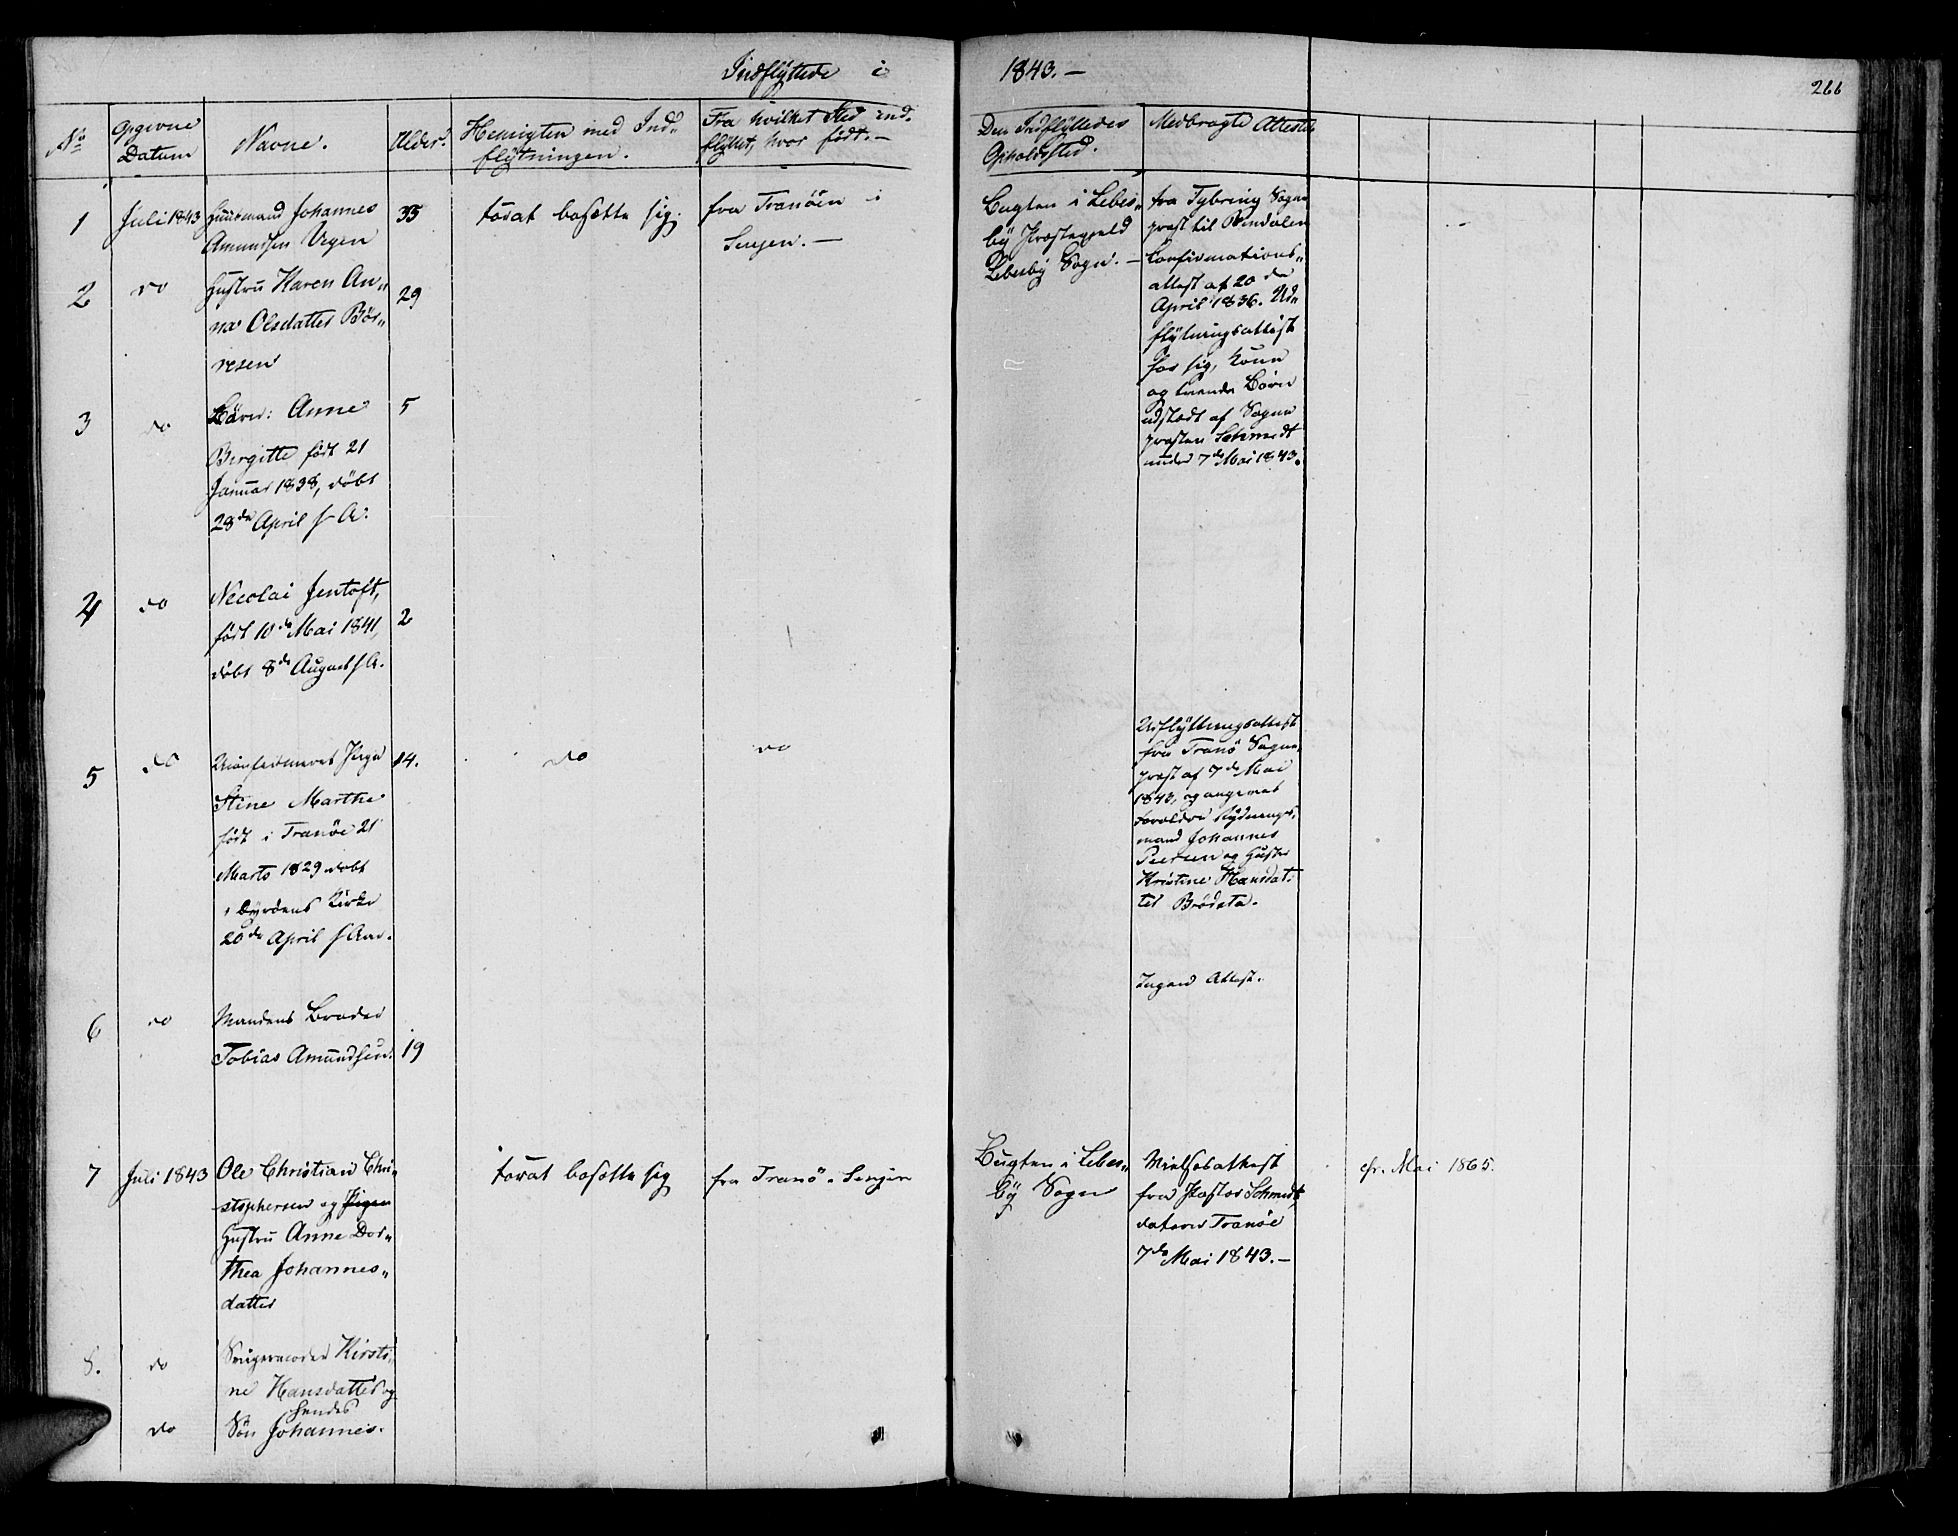 Indflyttede i 1843.—
266
No
Opgivne
Datum
Navne.
Alder.
Hensigten med Ind-
flytningen.
Fra hvilket Sted ind-
flyttet, hvor født.—
Den Indflyttedes
Opholdssted.
Medbragte Attester
1
Juli 1843
Huusmand Johannes
Amundsen
35
for at bosætte sig.
fra Tranøen i
Senjen.—
Bugten i Lebes-
by Præstegjeld
Lebesby Sogn.—
fra Tybring Sogne-
præst til
Confirmations-
attest af 20de
April 1836. Ud-
flytningsattest
for sig, Kone
og tvende Børn
udstædt af Sogne
præsten Schmidt
under 7de Mai 1843.
2
do
Hustru Karen An-
na Olsdatter Bør-
resen
29
3
do
Børn: Anne
Birgitte født 21
Januar 1838, døbt
28de April s. A.
5
4
do
Nicolai Jentoft,
født 10de Mai 1841,
døbt 8de August s. A.
2
5
do
Uconfirmeret Pige
Stine Marthe
født i Tranöe 21
Marts 1829 døbt
i Dyröens Kirke
20de April s. Aar.
14.
do
do
Udflytningsattest
fra Tranö Sogne-
præst af 7de Mai
1843, og angivne
Forældre Rydnings-
mand Johannes
Peersen og Hustru
Kristine Hansdat-
ter
6
do
Mandens Broder
Tobias Amundsen.
19
Ingen Attest.
7
Juli 1843
Ole Christian Chri-
stophersen og Pigen
Hustru Anne Dor-
thea Johannes-
datter
for at bosætte sig
fra Tranö i Senjen
Bugten i Lebes-
by Sogn
Vielsesattest
fra Pastor Schmidt,
dateret Tranöe
7de Mai 1843.—
cfr. Mai 1865.
8.
do
Svigermoder Kirsti-
ne Hansdatter og
hendes
do
Sön Johannes.